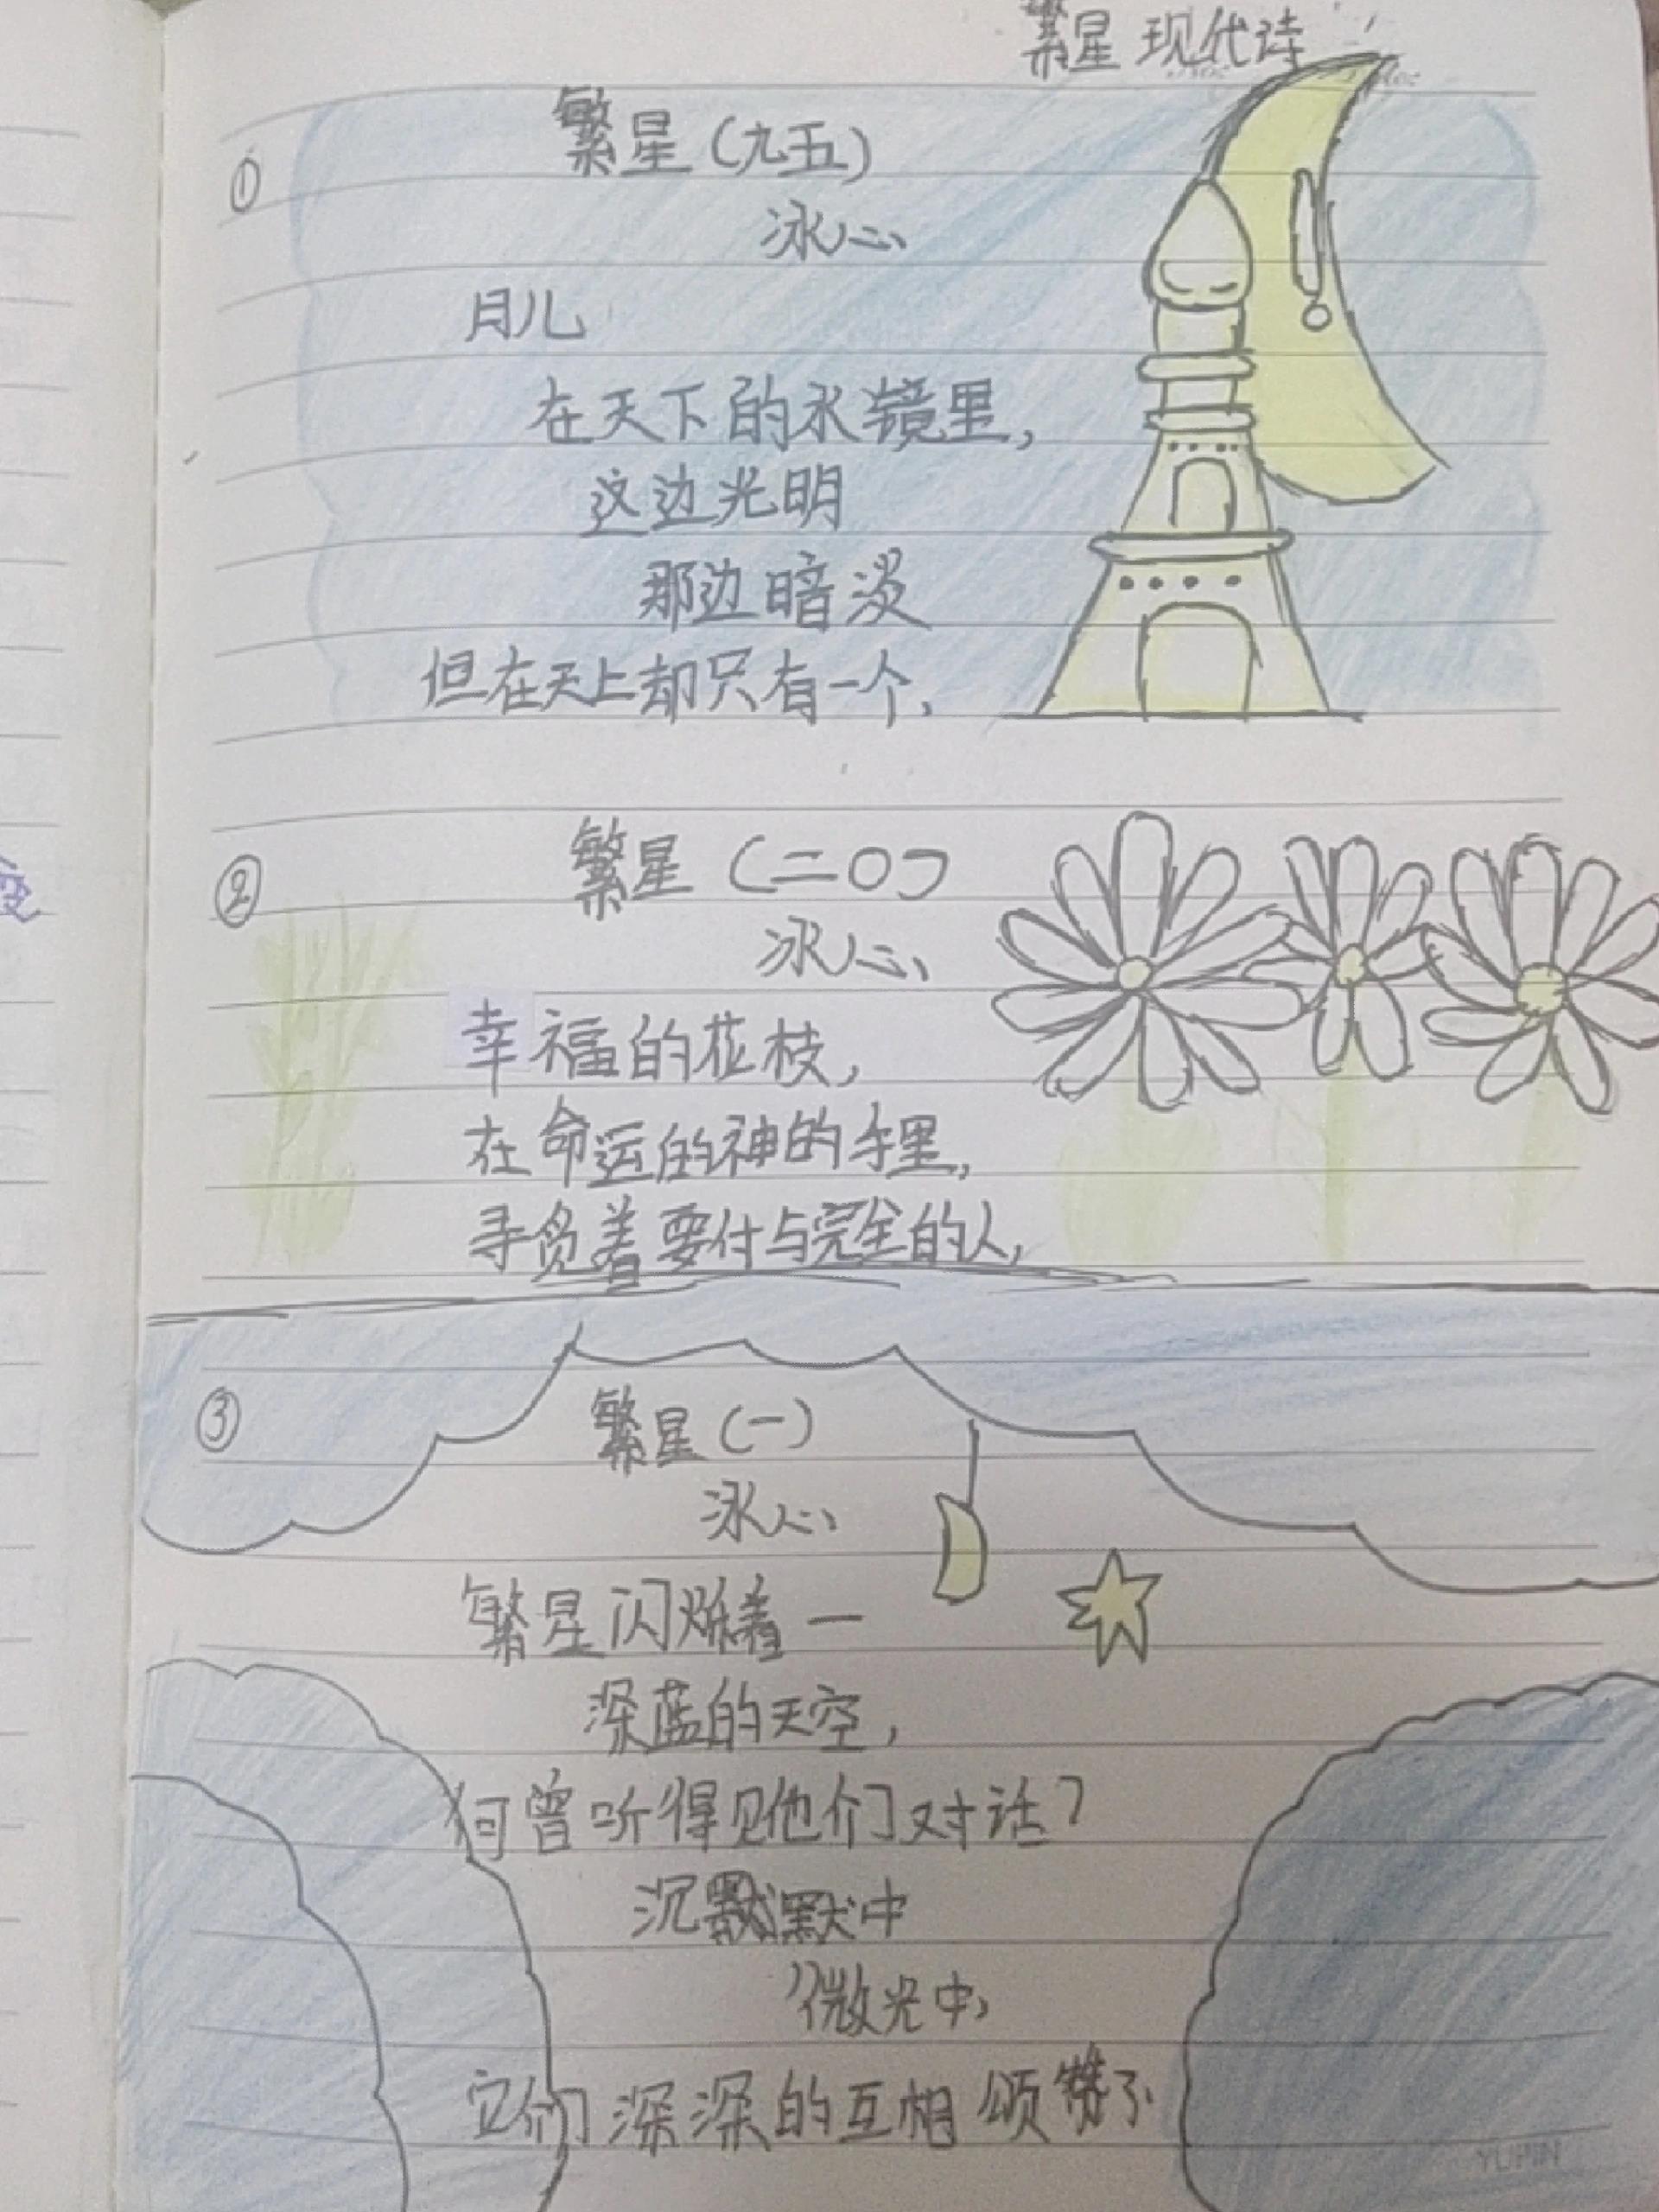 繁星 现代诗
① 繁星(九五)
冰心
月儿
在天下的水镜里,
这边光明
那边暗淡
但在天上却只有一个、
② 繁星(二〇)
冰心
幸福的花枝,
在命运的神的手里,
寻觅着要付与完全的人,
③ 繁星(一)
冰心
繁星闪烁着一
深蓝的天空,
何曾听得见他们对话?
沉默默中
微光中,
它们深深的互相颂赞了
YUPIN